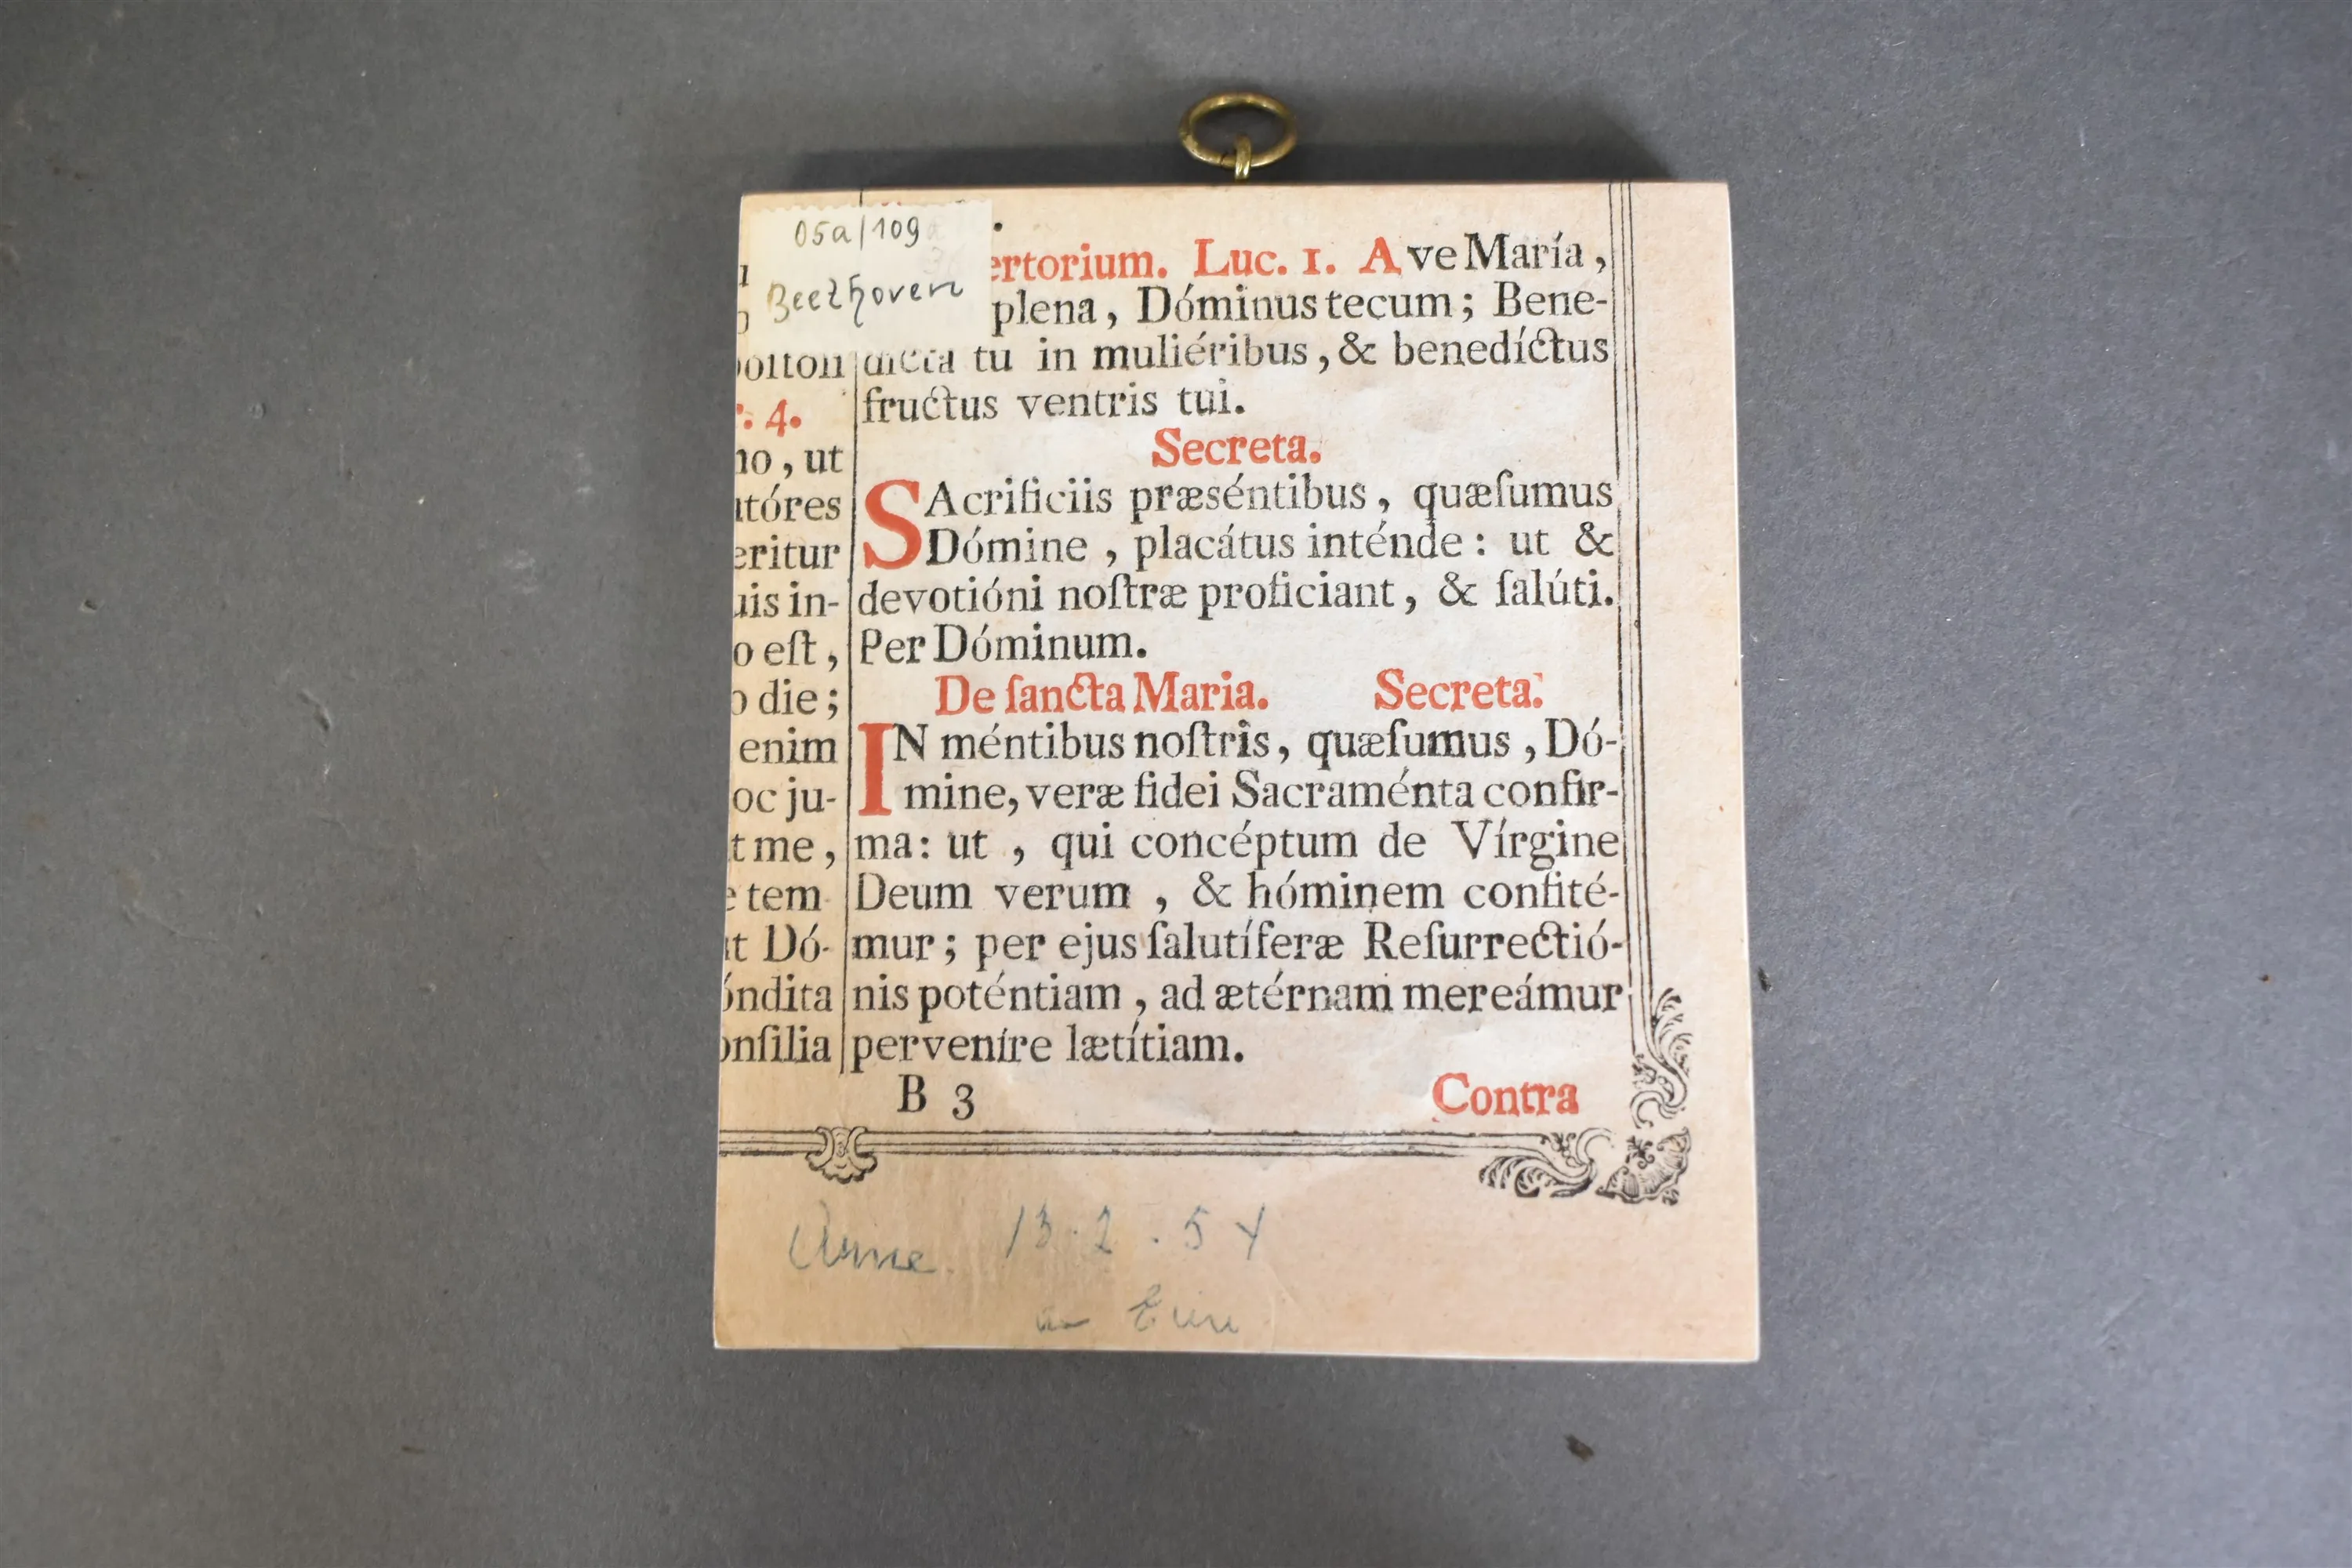 05a/109
Beethoven
ertorium. Luc. 1. Ave María,
plena, Dóminus tecum; Bene-
dicta tu in muliéribus, & benedíctus
fructus ventris tui.
Secreta.
SAcrificiis præséntibus, quæſumus
Dómine, placátus inténde: ut &
devotióni noſtræ proficiant, & ſalúti.
Per Dóminum.
De ſancta Maria. Secreta.
IN méntibus noſtris, quæſumus, Dó-
mine, veræ fidei Sacraménta confir-
ma: ut, qui concéptum de Vírgine
Deum verum, & hóminem confité-
mur; per ejus ſalutíferæ Reſurrectió-
nis poténtiam, ad ætérnam mereámur
pervenire lætítiam.
B 3
Contra
. 4.
no, ut
tóres
eritur
uis in-
o eſt,
o die;
enim
oc ju-
t me,
e tem
t Dó-
óndita
onſilia
13.2.54